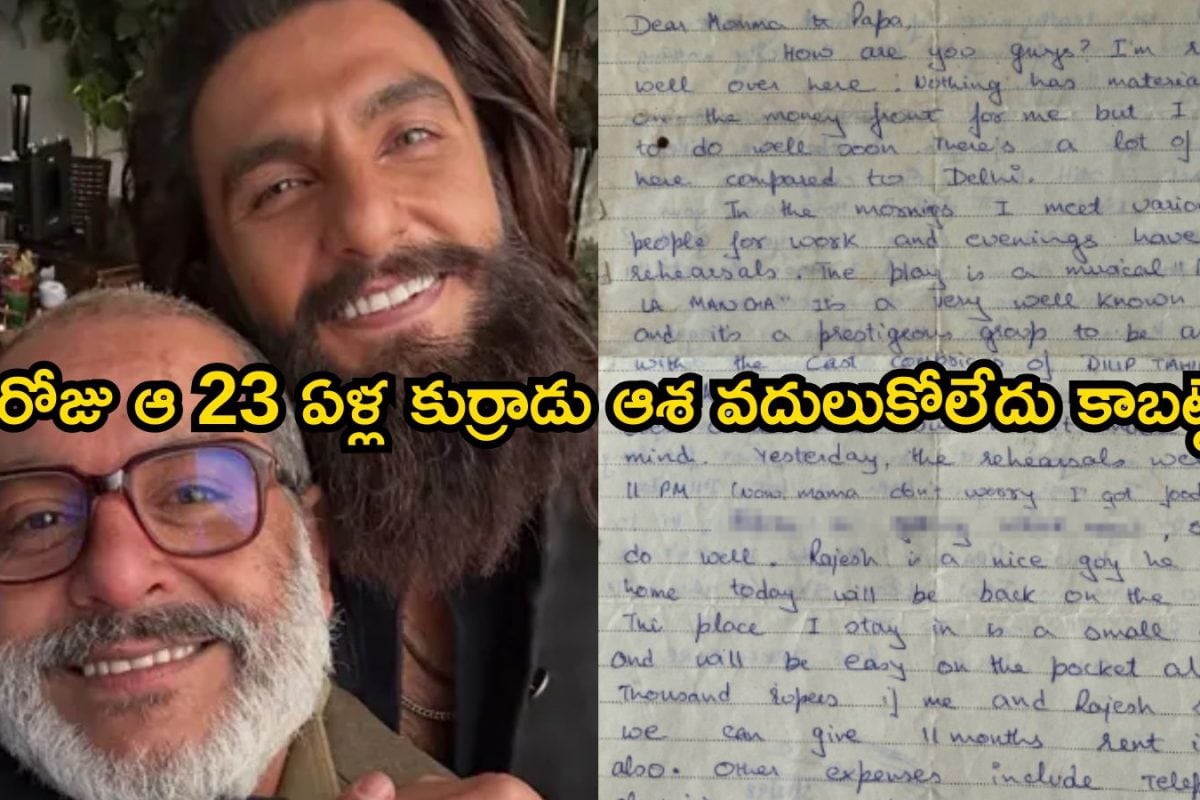 Dear Momma & Papa,
How are you guys? I'm
well over here. Nothing has materia
on the money front for me but I
to do well soon There's a lot of
here compared to Delhi.
In the mornigs I meet vario
people for work and evenings have
rehearsals. The play is a musical
LA MANCHA" Its a very well known
and its a prestigeous group to be a
with the cast of DILIP TAH
రోజు ఆ 23 ఏళ్ల కుర్రాడు ఆశ వదులుకోలేదు కాబట్టి
mind. Yesterday, the rehearsals we
11 PM (wow mama don't worry I got foo
do well. Rajesh is a nice goy he
home today will be back on the
This place I stay in is a small
and will be easy on the pocket al
Thousand rupees if me and Rajesh
we can give 11 months rent i
also. Other expenses include Telep